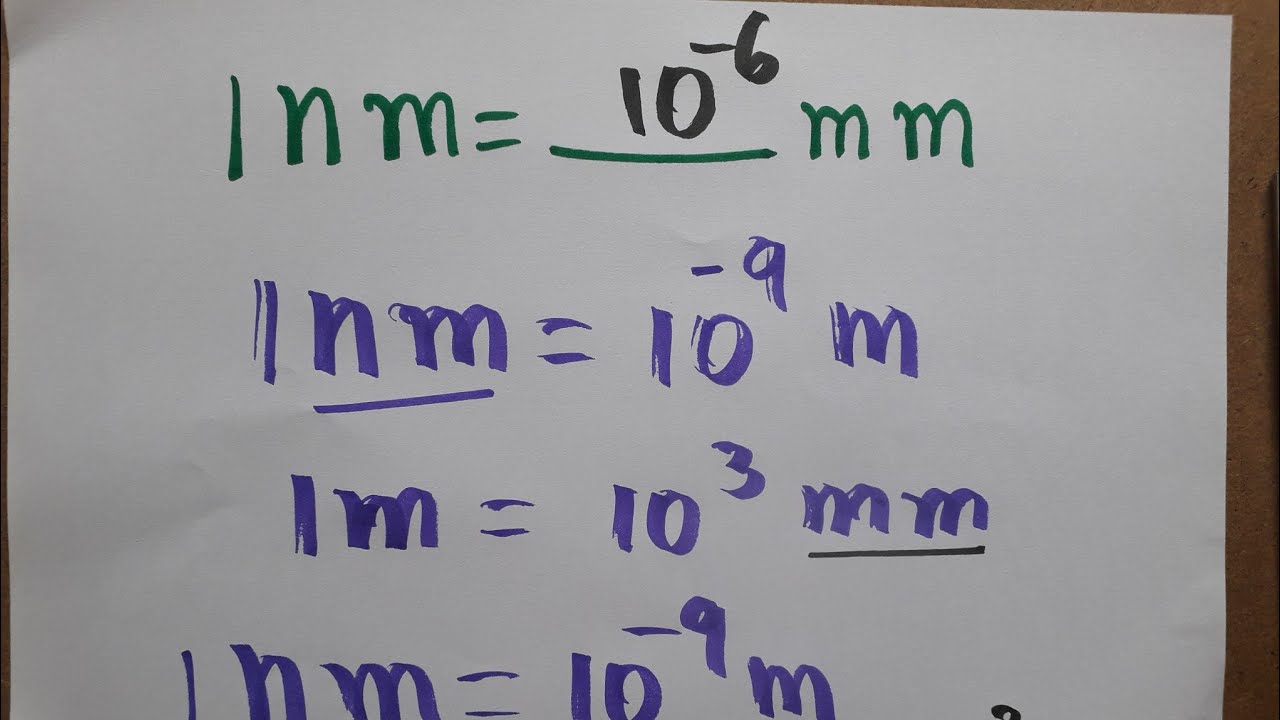 1 nm = 10⁻⁶ mm
1 nm = 10⁻⁹ m
1m = 10³ mm
1 nm = 10⁻⁹ m